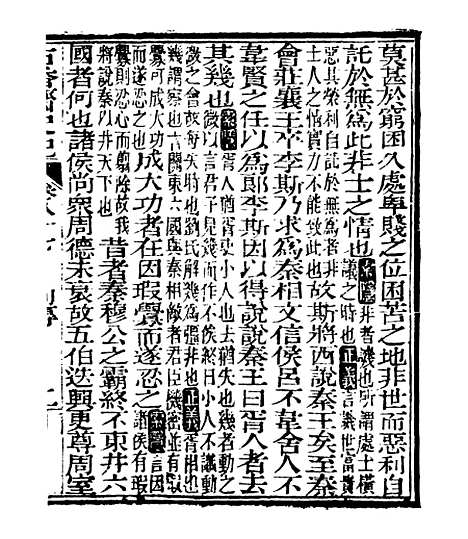 莫甚於窮困久處卑賤之位困苦之地非世而惡利自
託於無為此非士之情也索隱非者譏也所謂處士橫議之時也正義言譏世富貴
惡其榮利自託於無為者非士人之情實力不能致此也故斯將西說秦王矣至秦
會莊襄王卒李斯乃求為秦相文信侯呂不韋舍人不
韋賢之任以為郎李斯因以得說說秦王曰胥人者去
其幾也索隱胥人猶胥吏小人也去猶失也幾者動之微以言君子見幾而作不俟終日小人不識動
微之會故每失時也劉氏解幾為強非也正義胥相也幾謂察也言關東六國與秦相敵者君臣機密並有瑕
釁可成大功而遂忍之也成大功者在因瑕釁而遂忍之索隱言因諸侯有瑕
釁則忍心而翦除故我將說秦以并天下也昔者秦穆公之霸終不東并六
國者何也諸侯尚眾周德未衰故五伯迭興更尊周室